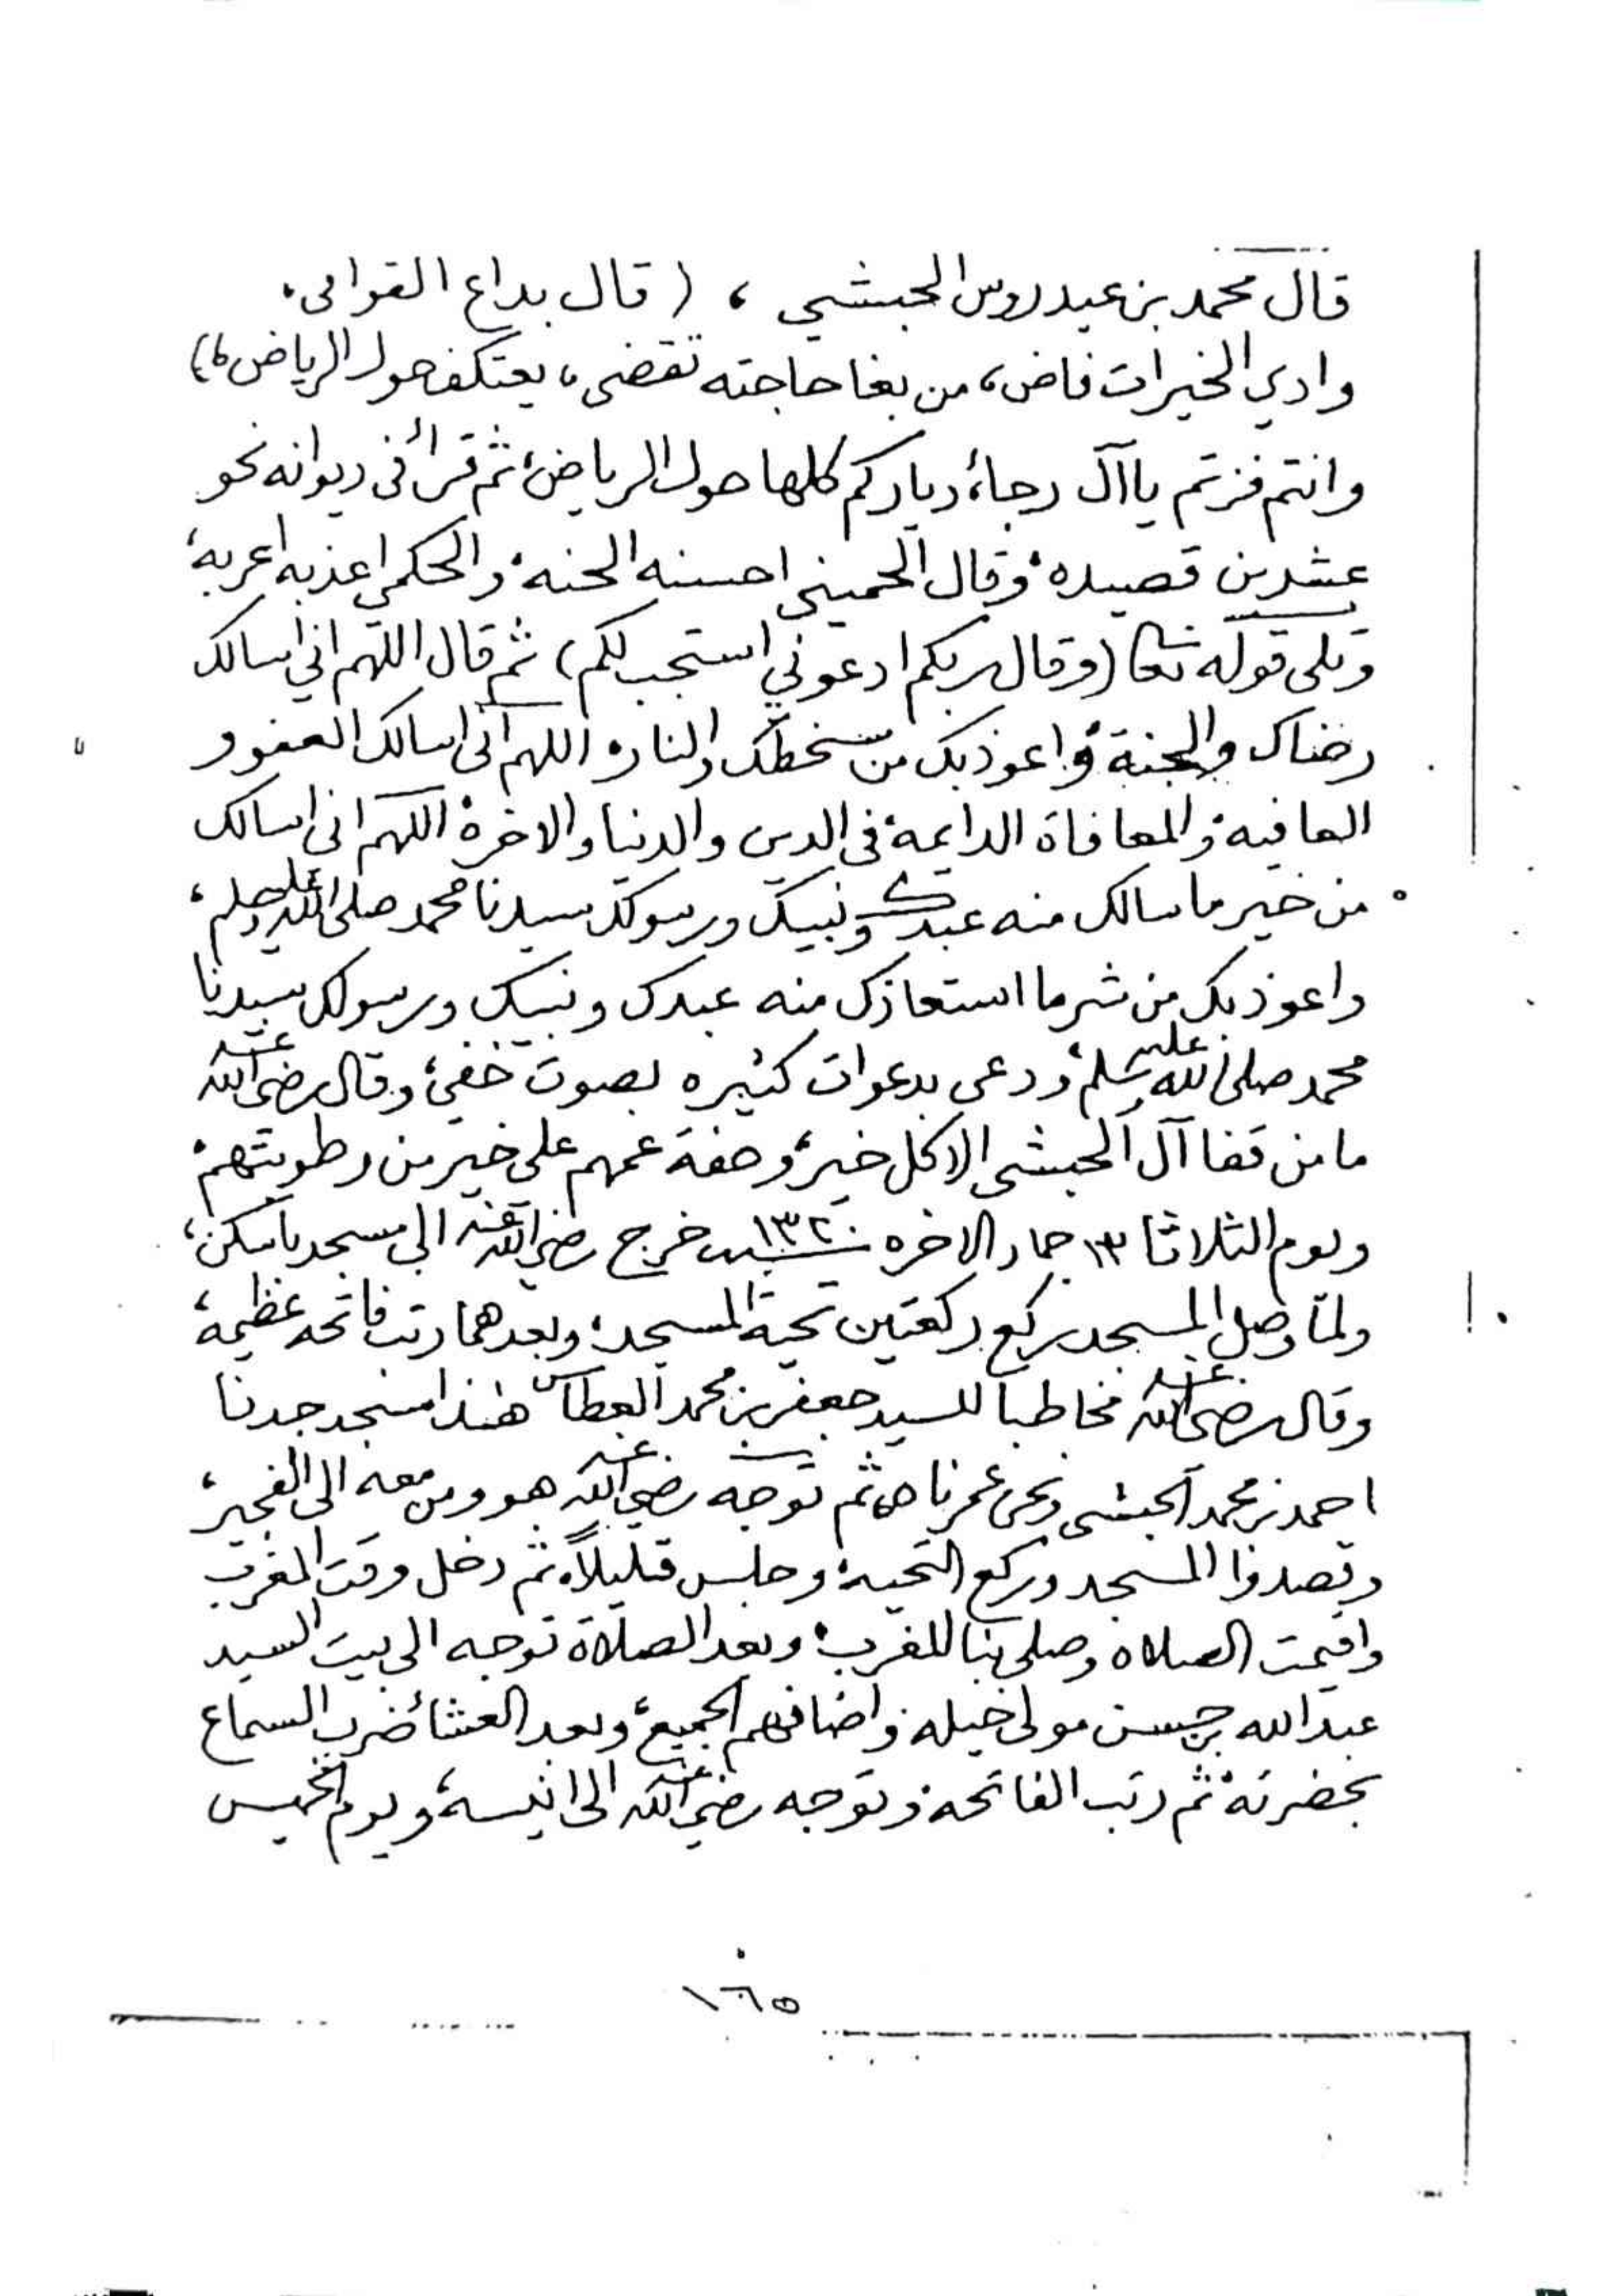 قال محمد بن عيدروس الحبشي ، ( قال بداع القوافي ،
وادي الخيرات فاض ، من بغا حاجته تقضى ، يعتكف حول الرياض ، )
وانتم فزتم يا آل رجاء ، دياركم كلها حول الرياض ، ثم قرأ في ديوانه نحو
عشرين قصيده ، وقال الحميني احسنه الحنه ، والحكمي اعذبه اعربه ،
وتلى قوله تعا ( وقال ربكم ادعوني استجب لكم ) ثم قال اللهم اني اسالك
رضاك والجنة ، واعوذ بك من سخطك والنار ، اللهم اني اسالك العفو و
العافيه والمعافاة الدايمة في الدين والدنيا والاخرة ، اللهم اني اسالك
من خير ما سالك منه عبدك ونبيك ورسولك سيدنا محمد صلى الله عليه وسلم ،
واعوذ بك من شر ما استعاذك منه عبدك ونبيك ورسولك سيدنا
محمد صلى الله عليه وسلم ، ودعى بدعوات كثيره بصوت خفي ، وقال رضي الله عنه
ما من قفا آل الحبشي الا كل خير ، وصفة عمهم على خير من رطوبتهم ،
ويوم الثلاثا ١٣ جماد الاخره سنة ١٣٢٠ خرج رضي الله عنه الى مسجد باسكن ،
ولمّا وصل المسجد ركع ركعتين تحية المسجد ، وبعدهما رتب فاتحه عظيمة ،
وقال رضي الله عنه مخاطبا للسيد جعفر بن محمد العطاس هذا مسجد جدنا
احمد بن محمد الحبشي ونحن عمرناه ، ثم توجه رضي الله عنه هو ومن معه الى الفجير ،
وقصدوا المسجد وركع التحية ، وجلس قليلاً ، ثم دخل وقت المغرب
واقيمت الصلاه وصلى بنا المغرب ، وبعد الصلاة توجه الى بيت السيد
عبد الله بن حسن مولى خيله واضافهم الجميع ، وبعد العشاء ضرب السماع
بحضرته ، ثم رتب الفاتحه وتوجه رضي الله عنه الى انيسه ، ويوم الخميس
١٦٥